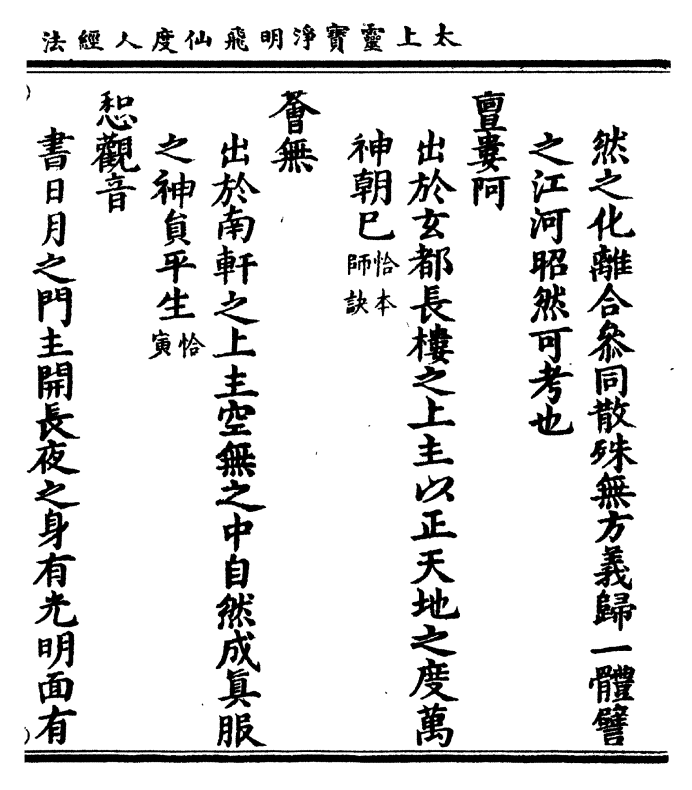 太上靈寶淨明飛仙度人經法
然之化離合叅同散殊無方義歸一體譬
之江河昭然可考也
亶婁阿
出於玄都長樓之上主以正天地之度萬
神朝巳恰本師訣
薈無
出於南軒之上主空無之中自然成眞服
之神貟平生恰寅
惒觀音
書日月之門主開長夜之身有光明面有